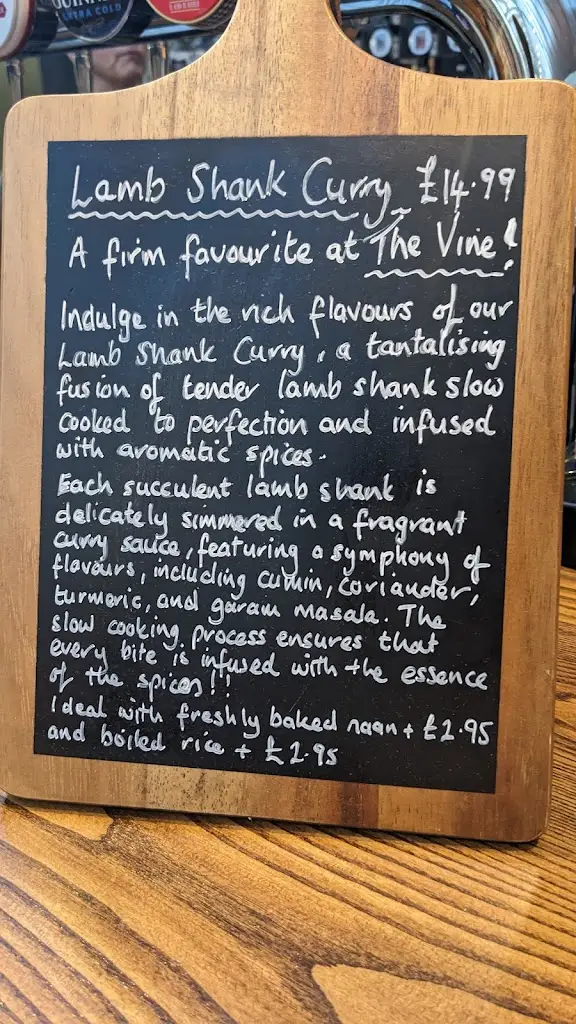 GUINNESS
EXTRA COLD
Lamb Shank Curry £14.99
A firm favourite at The Vine!
Indulge in the rich flavours of our
Lamb Shank Curry, a tantalising
fusion of tender lamb shank slow
cooked to perfection and infused
with aromatic spices.
Each succulent lamb shank is
delicately simmered in a fragrant
curry sauce, featuring a symphony of
flavours, including cumin, coriander,
turmeric, and garam masala. The
slow cooking process ensures that
every bite is infused with the essence
of the spices!!
Ideal with freshly baked naan + £2.95
and boiled rice + £2.95